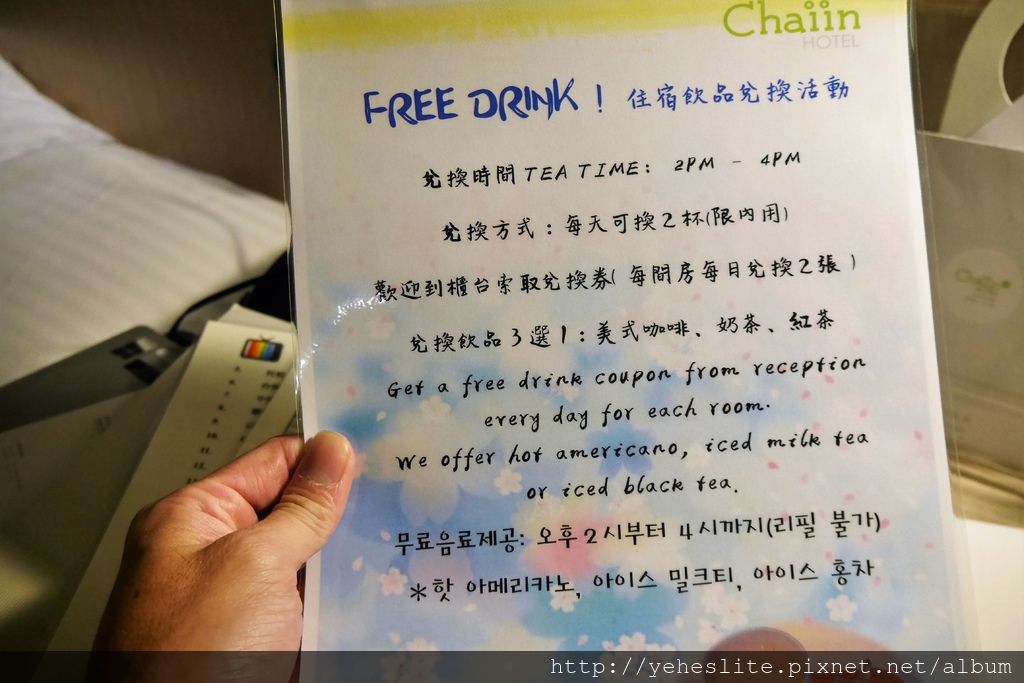 Chaiin
HOTEL
FREE DRINK！住宿飲品兌換活動
兌換時間 TEA TIME： 2PM － 4PM
兌換方式：每天可換2杯(限內用)
歡迎到櫃台索取兌換券(每間房每日兌換2張)
兌換飲品3選1：美式咖啡、奶茶、紅茶
Get a free drink coupon from reception
every day for each room.
We offer hot americano, iced milk tea
or iced black tea.
무료음료제공: 오후 2시부터 4시까지(리필 불가)
*핫 아메리카노, 아이스 밀크티, 아이스 홍차
Chaiin
http://yeheslite.pixnet.net/album